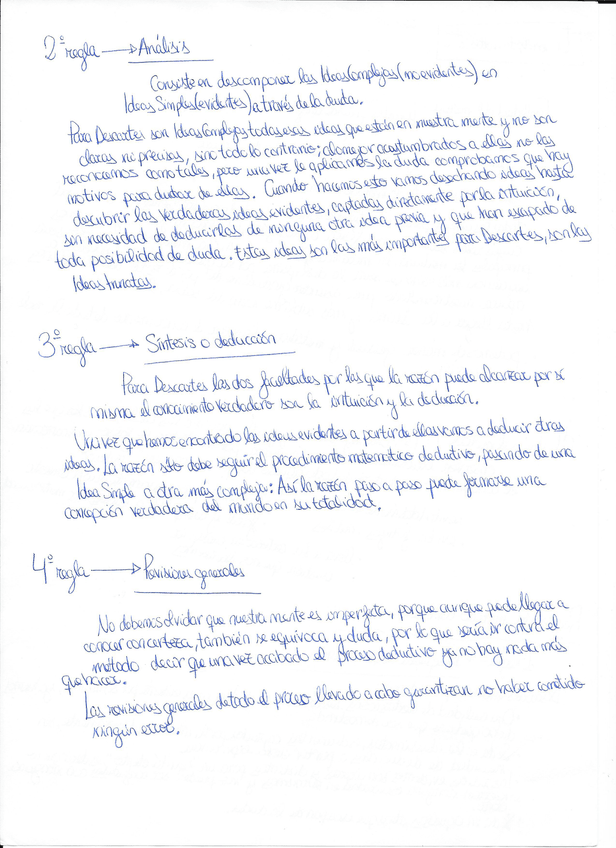 2º regla → Análisis
Consiste en descomponer las Ideas Complejas (no evidentes) en
Ideas Simples (evidentes) a través de la duda.
Para Descartes son Ideas Complejas todas esas ideas que están en nuestra mente y no son
claras ni precisas, sino todo lo contrario; al estar acostumbrados a ellas no las
reconocemos como tales, pero una vez le aplicamos la duda comprobamos que hay
motivos para dudar de ellas. Cuando hacemos esto vamos desechando ideas hasta
descubrir las verdaderas ideas evidentes, captadas directamente por la intuición,
sin necesidad de deducirlas de ninguna otra idea previa y que han escapado de
toda posibilidad de duda. Estas ideas son las más importantes para Descartes, son las
Ideas Innatas.
3º regla → Síntesis o deducción
Para Descartes las dos facultades por las que la razón puede alcanzar por sí
misma el conocimiento verdadero son la intuición y la deducción.
Una vez que hemos encontrado las ideas evidentes a partir de ellas vamos a deducir otras
ideas. La razón sólo debe seguir el procedimiento matemático deductivo, pasando de una
Idea Simple a otra más compleja: Así la razón paso a paso puede formarse una
concepción verdadera del mundo en su totalidad.
4º regla → Revisiones generales
No debemos olvidar que nuestra mente es imperfecta, porque aunque puede llegar a
conocer con certeza, también se equivoca y duda, por lo que sería ir contra el
método decir que una vez acabado el proceso deductivo ya no hay nada más
que hacer.
Las revisiones generales de todo el proceso llevado a cabo garantizan no haber cometido
ningún error.